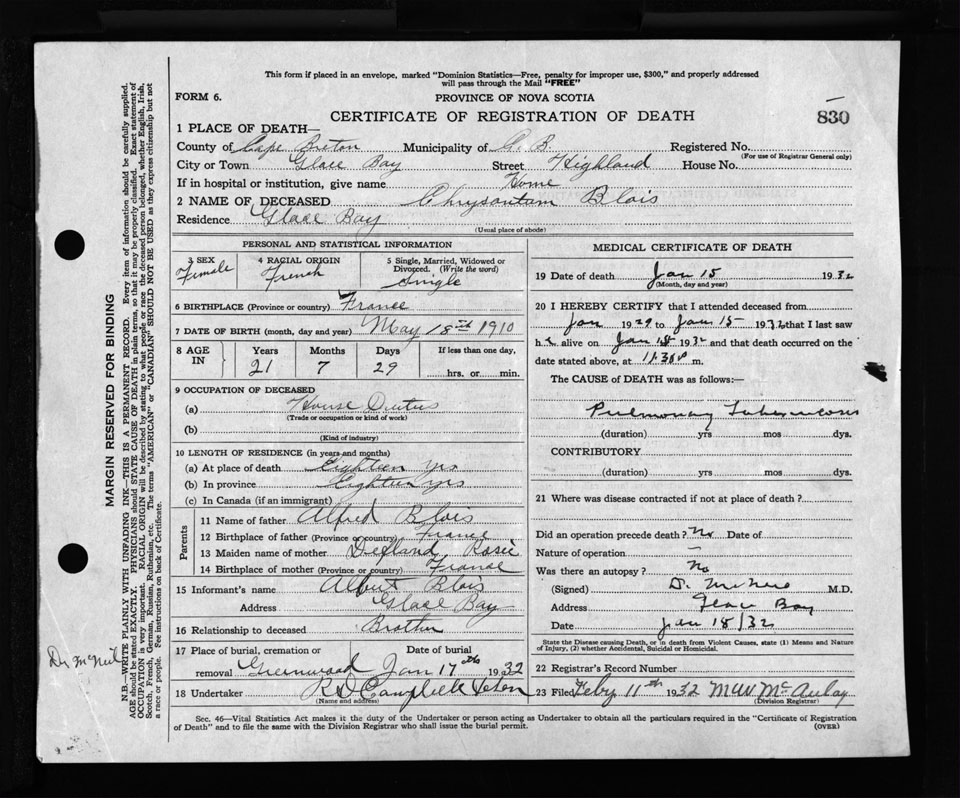 This form if placed in an envelope, marked "Dominion Statistics—Free, penalty for improper use, $300," and properly addressed
will pass through the Mail "FREE"
FORM 6.
PROVINCE OF NOVA SCOTIA
CERTIFICATE OF REGISTRATION OF DEATH
830
1 PLACE OF DEATH—
County of Cape Breton Municipality of C. B. Registered No.
(For use of Registrar General only)
City or Town Glace Bay Street Highland House No.
If in hospital or institution, give name Home
2 NAME OF DECEASED Chrysantam Blois
Residence Glace Bay
(Usual place of abode)
PERSONAL AND STATISTICAL INFORMATION
3 SEX 4 RACIAL ORIGIN 5 Single, Married, Widowed or
Divorced. (Write the word)
Female French Single
6 BIRTHPLACE (Province or country) France
7 DATE OF BIRTH (month, day and year) May 18th 1910
8 AGE IN Years Months Days If less than one day,
21 7 29 hrs. or min.
9 OCCUPATION OF DECEASED
(a) House Duties
(Trade or occupation or kind of work)
(b)
(Kind of industry)
10 LENGTH OF RESIDENCE (in years and months)
(a) At place of death Eighteen yrs
(b) In province Eighteen yrs
(c) In Canada (if an immigrant)
Parents
11 Name of father Alfred Blois
12 Birthplace of father (Province or country) France
13 Maiden name of mother Rosie
14 Birthplace of mother (Province or country) France
15 Informant's name Albert Blois
Address Glace Bay
16 Relationship to deceased Brother
17 Place of burial, cremation or Date of burial
removal Greenwood Jan 17th 1932
18 Undertaker
(Name and address)
MEDICAL CERTIFICATE OF DEATH
19 Date of death Jan 15 1932
(Month, day and year)
20 I HEREBY CERTIFY that I attended deceased from
Jan 1929 to Jan 15 1932 that I last saw
h alive on Jan 1932 and that death occurred on the
date stated above, at 11.30 m.
The CAUSE of DEATH was as follows:—
Pulmonary Tuberculosis
(duration) yrs mos dys.
CONTRIBUTORY
(duration) yrs mos dys.
21 Where was disease contracted if not at place of death?
Did an operation precede death? No Date of
Nature of operation —
Was there an autopsy? No
(Signed) M.D.
Address Glace Bay
Date Jan 18/32
State the Disease causing Death, or in death from Violent Causes, state (1) Means and Nature
of Injury, (2) whether Accidental, Suicidal or Homicidal.
22 Registrar's Record Number
23 Filed Feby 11th 1932 McAulay
(Division Registrar)
Sec. 46—Vital Statistics Act makes it the duty of the Undertaker or person acting as Undertaker to obtain all the particulars required in the "Certificate of Registration
of Death" and to file the same with the Division Registrar who shall issue the burial permit.
(OVER)
MARGIN RESERVED FOR BINDING
N.B.—WRITE PLAINLY WITH UNFADING INK—THIS IS A PERMANENT RECORD. Every item of information should be carefully supplied.
AGE should be stated EXACTLY. PHYSICIANS should STATE CAUSE OF DEATH in plain terms, so that it may be properly classified. Exact statement of
OCCUPATION is very important. RACIAL ORIGIN will be described by stating to what people or race the deceased person belonged, whether English, Irish,
Scotch, French, German, Russian, Ruthenian, etc. The terms "AMERICAN" or "CANADIAN" SHOULD NOT BE USED as they express citizenship but not
a race or people. Fee instructions on back of Certificate.
Dr McNeil